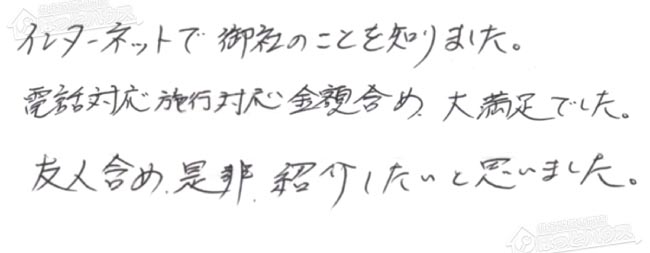 インターネットで御社のことを知りました。
電話対応施行対応金額含め、大満足でした。
友人含め、是非、紹介したいと思いました。